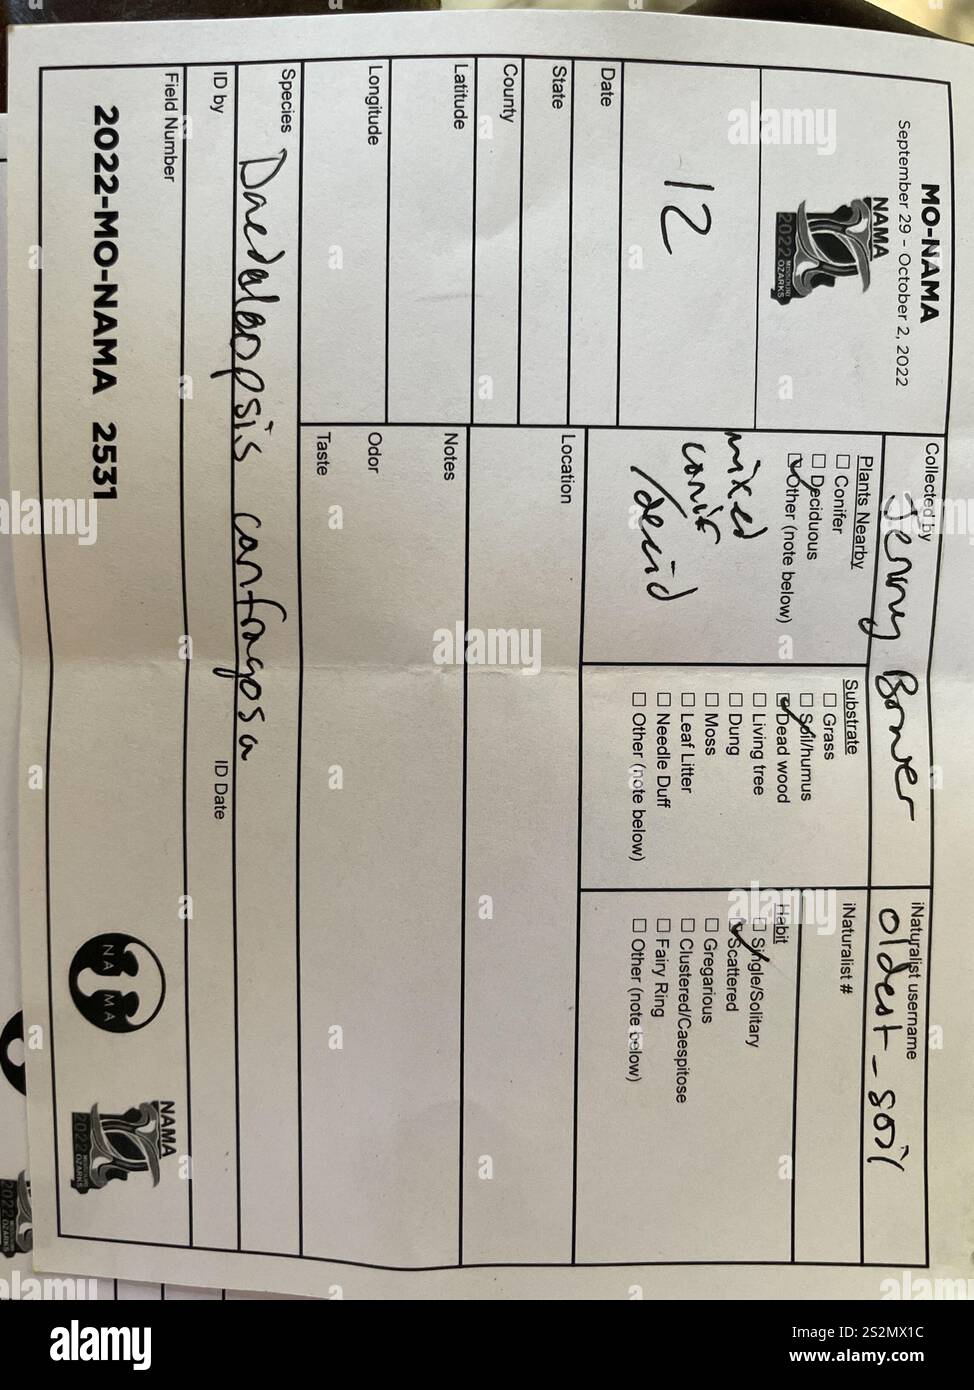 MO-NAMA
September 29 - October 2, 2022
NAMA
2022 MISSOURI OZARKS
12
Date
State
County
Latitude
Longitude
Collected by
Jenny Bower
iNaturalist username
oldest_soil
iNaturalist #
Plants Nearby
☐ Conifer
☐ Deciduous
☑ Other (note below)
mixed
conif
/decid
Substrate
☐ Grass
☐ Soil/humus
☑ Dead wood
☐ Living tree
☐ Dung
☐ Moss
☐ Leaf Litter
☐ Needle Duff
☐ Other (note below)
Habit
☐ Single/Solitary
☑ Scattered
☐ Gregarious
☐ Clustered/Caespitose
☐ Fairy Ring
☐ Other (note below)
Location
Notes
Odor
Taste
Species Daedaleopsis confragosa
ID by
ID Date
Field Number
2022-MO-NAMA 2531
NA MA
NAMA
2022 MISSOURI OZARKS
alamy
Image ID: 2S2MX1C
www.alamy.com